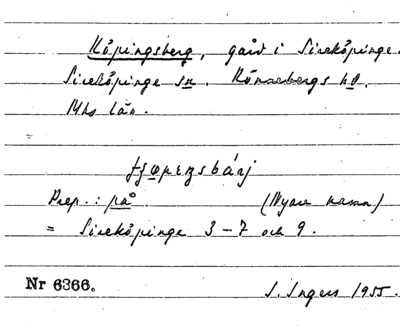 Köpingsberg, gård i Sireköpinge.
Sireköpinge sn. Rönnebergs hd.
Mhs län.
Prep.: på (Nyare namn)
= Sireköpinge 3-7 och 9.
Nr 6366. I. Ingers 1955.